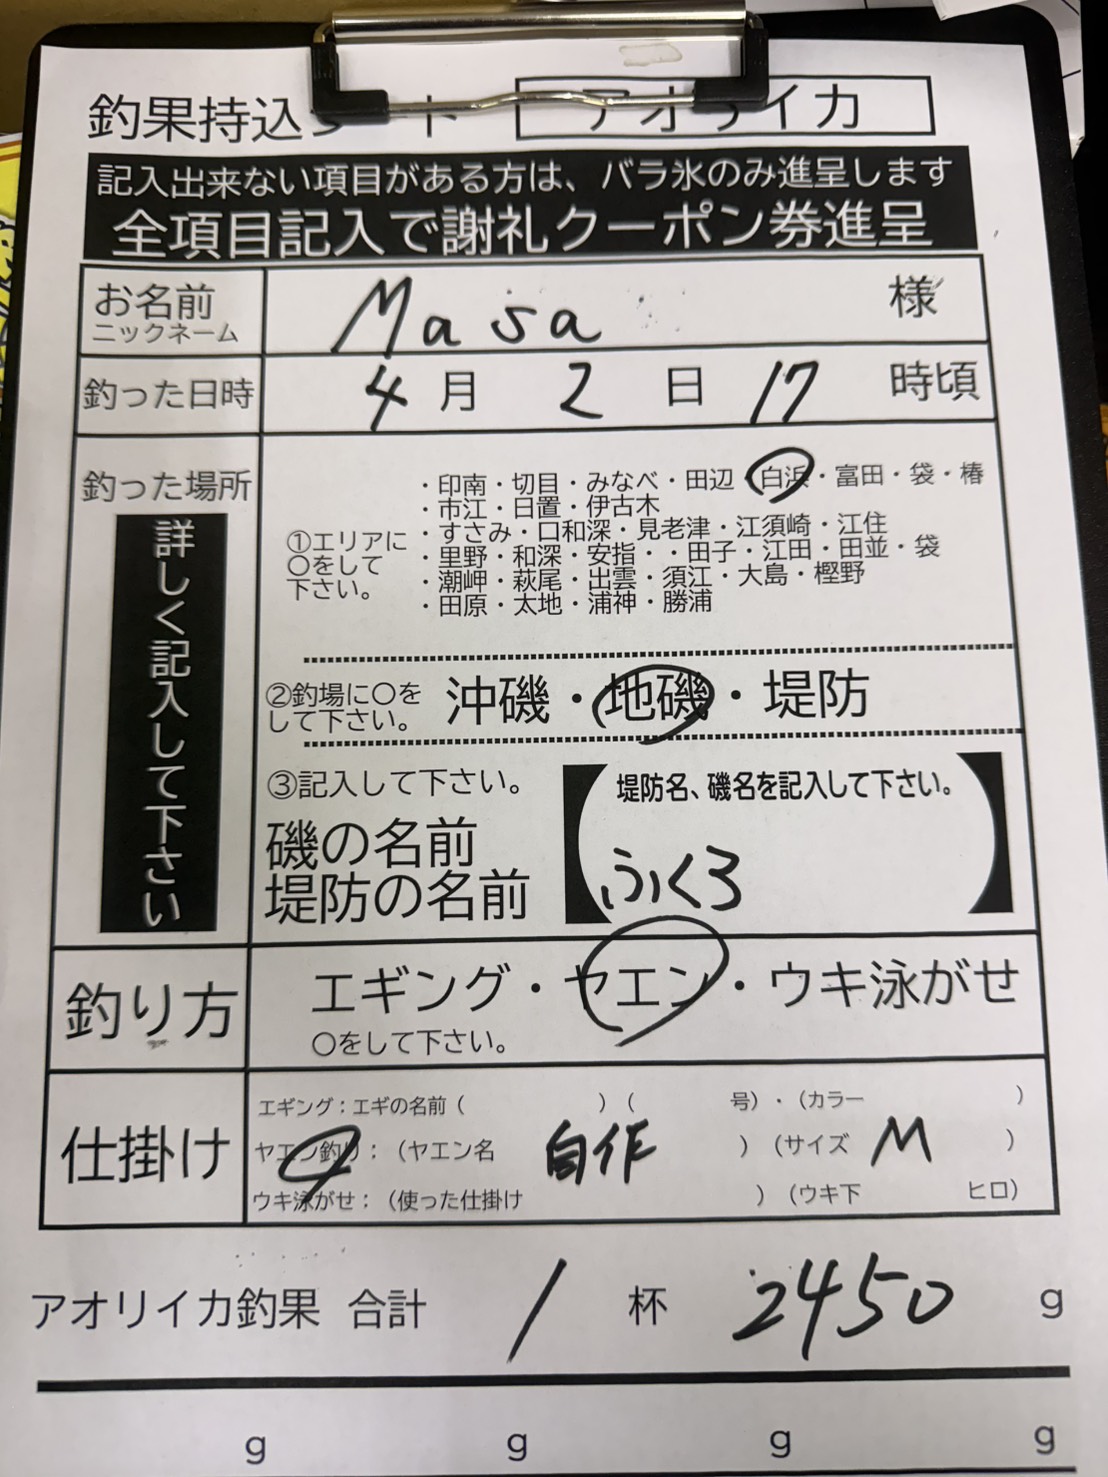 釣果持込シート アオリイカ
記入出来ない項目がある方は、バラ氷のみ進呈します
全項目記入で謝礼クーポン券進呈
お名前 Masa 様
ニックネーム
釣った日時 4月 2日 17時頃
釣った場所
詳しく記入して下さい
①エリアに
〇をして
下さい。
・印南・切目・みなべ・田辺・白浜・富田・袋・椿
・市江・日置・伊古木
・すさみ・口和深・見老津・江須崎・江住
・里野・和深・安指・・田子・江田・田並・袋
・潮岬・萩尾・出雲・須江・大島・樫野
・田原・太地・浦神・勝浦
②釣場に〇を
して下さい。
沖磯・地磯・堤防
③記入して下さい。
磯の名前
堤防の名前
【堤防名、磯名を記入して下さい。
ふくろ】
釣り方 エギング・ヤエン・ウキ泳がせ
〇をして下さい。
仕掛け
エギング：エギの名前（ ）（ 号）・（カラー ）
ヤエン釣り：（ヤエン名 自作 ）（サイズ M ）
ウキ泳がせ：（使った仕掛け ）（ウキ下 ヒロ）
アオリイカ釣果 合計 1 杯 2450 g
g g g g